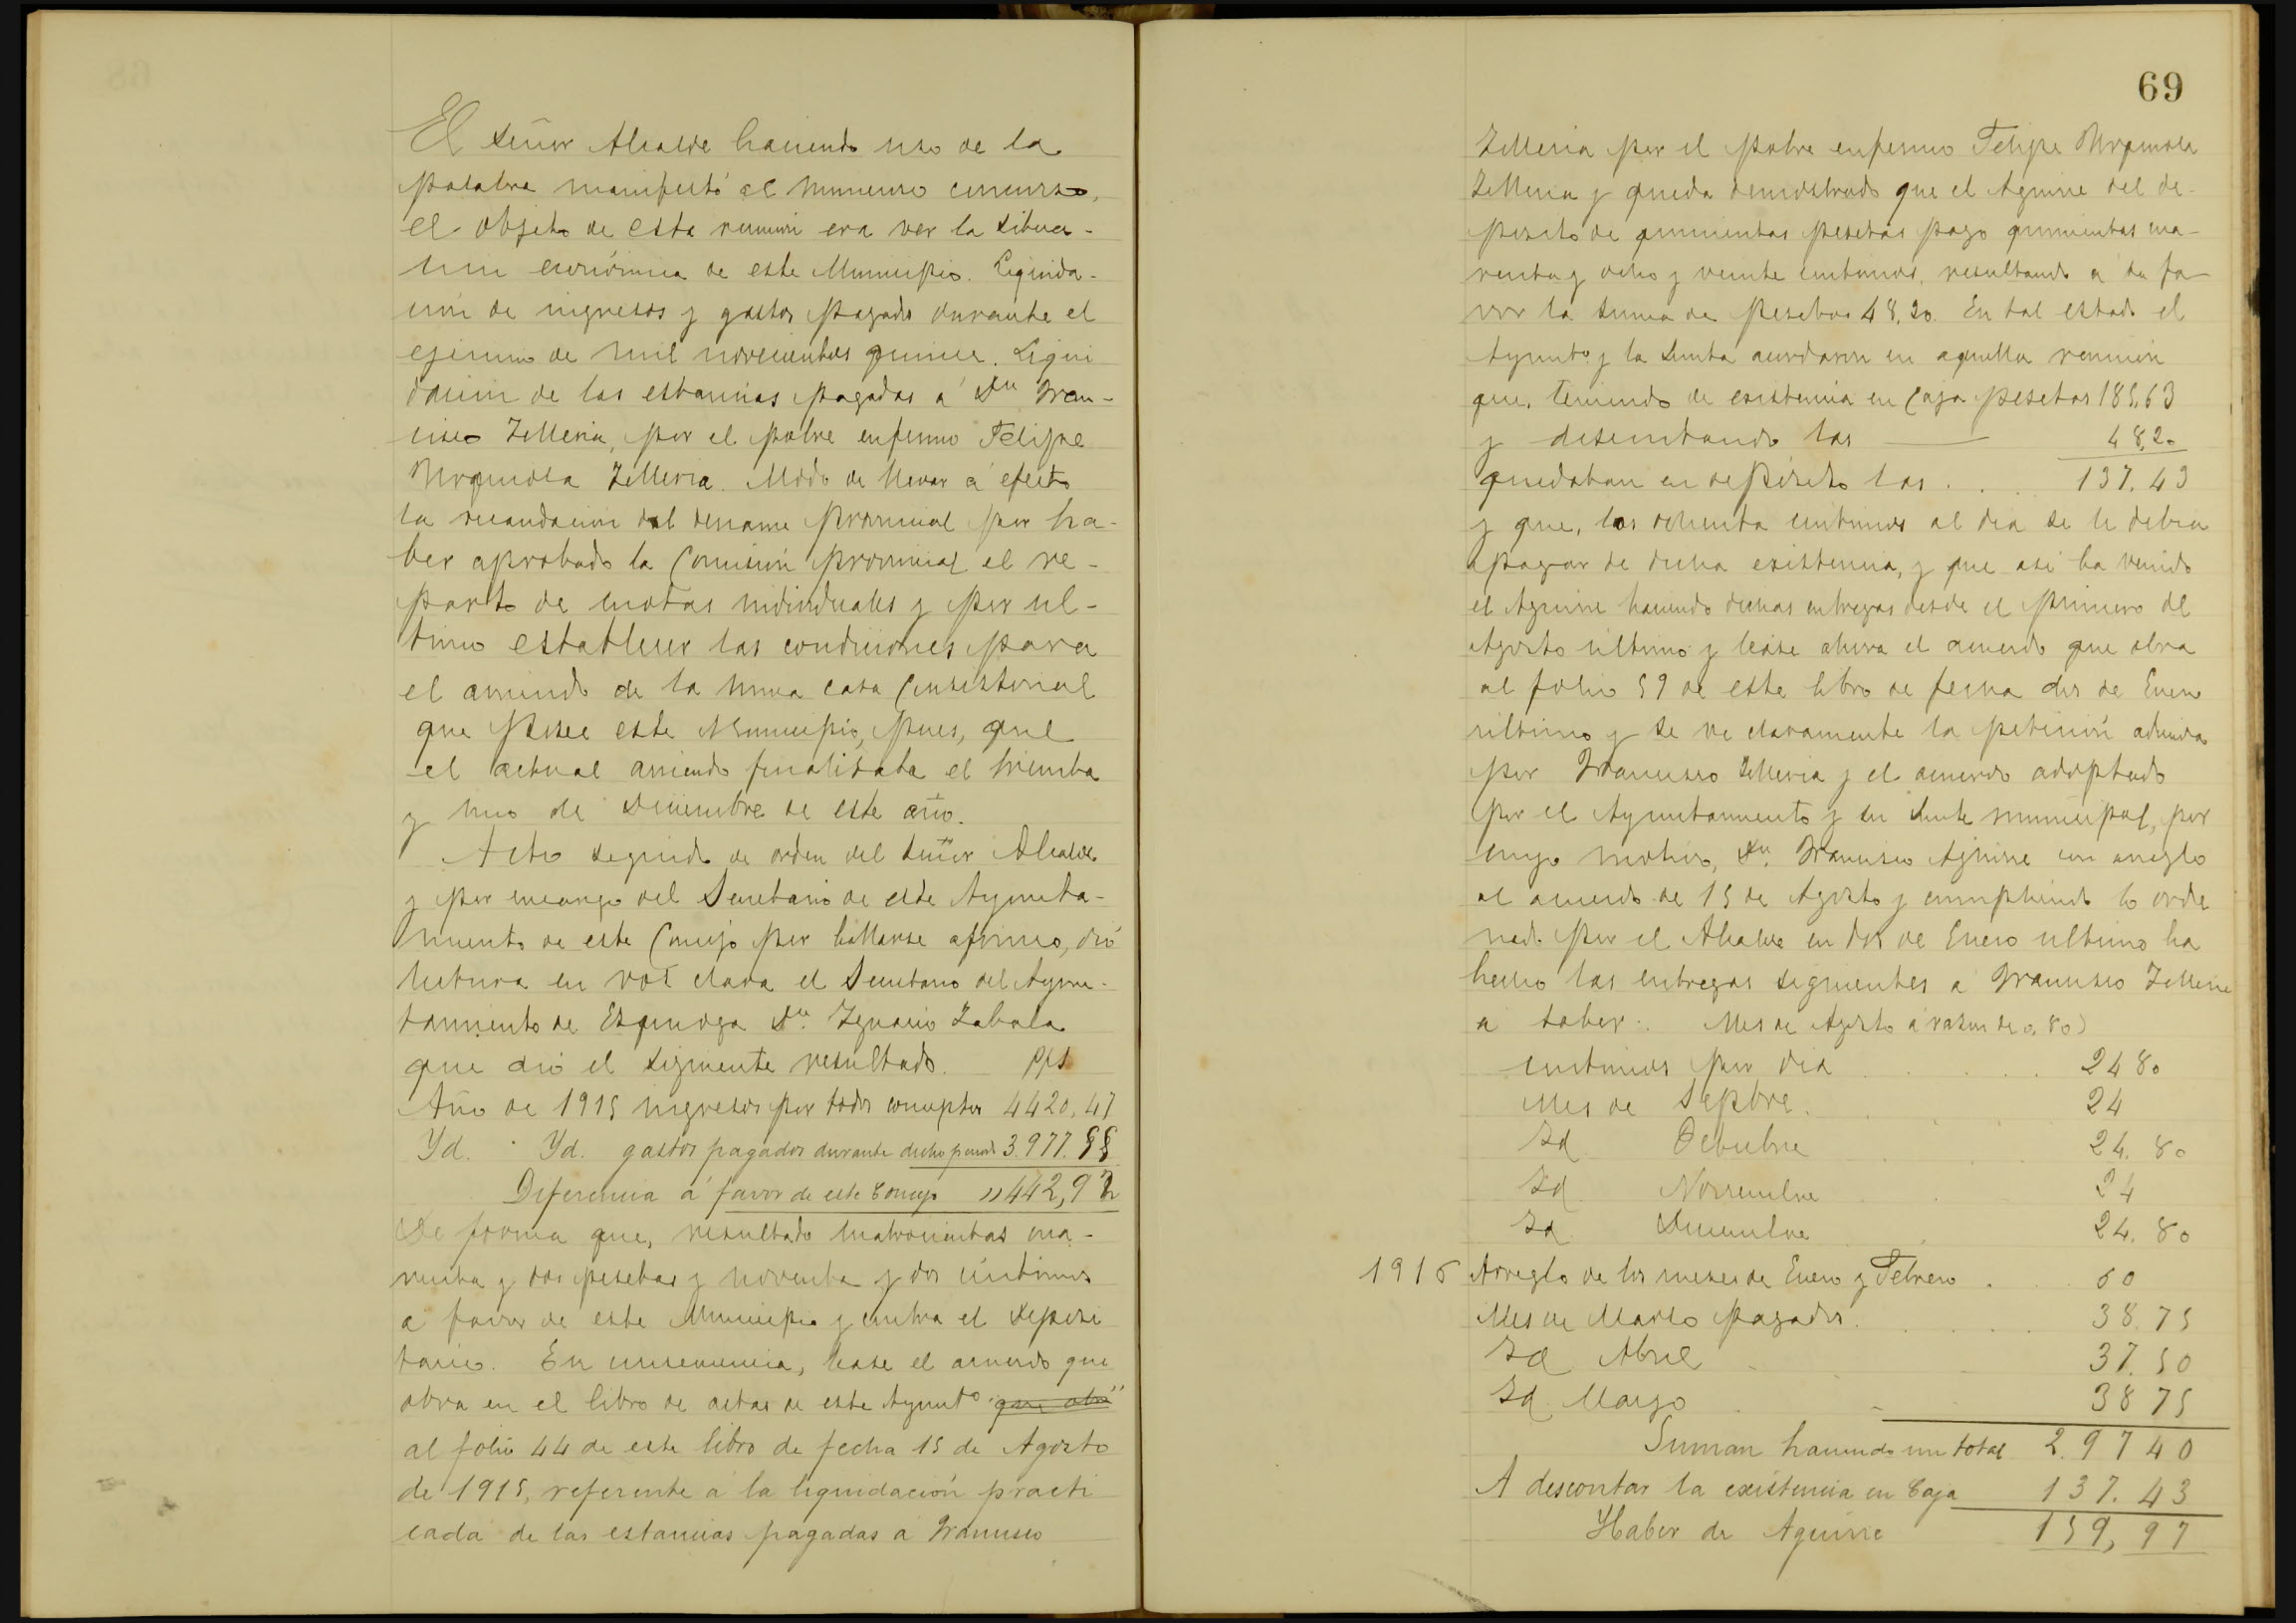 El Señor Alcalde haciendo uso de la
palabra manifestó al numeroso concurso,
el objeto de esta reunion era ver la situa-
ción económica de este Municipio. Liquida-
ción de ingresos y gastos pagados durante el
ejercicio de mil novecientos quince. Liqui
dación de las estancias pagadas a Dn Fran-
cisco Zelleria, por el pobre enfermo Felipe
Urquiola Zelleria. Modo de llevar a efecto
la recaudación del derrame provincial por ha-
ber aprobado la Comisión provincial el re-
parto de cuotas individuales y por ul-
timo establecer las condiciones para
el arriendo de la nueva casa Consistorial
que posee este Municipio, pues, que
el actual arriendo finalizaba el treinta
y uno de Diciembre de este año.
Acto seguido de orden del Señor Alcalde
y por encargo del Secretario de este Ayunta-
miento de este Concejo por hallarse afónico, dió
lectura en voz clara el Secretario del Ayun-
tamiento de Ezquioga Dn. Ygnacio Zabala
que dió el siguiente resultado. Pts
Año de 1915 ingresos por todos conceptos 4420,47
Yd. Yd. gastos pagados durante dicho periodo 3.977.55
Diferencia á favor de este Concejo " 442,92
De forma que, resultado cuatrocientas cua-
renta y dos pesetas y noventa y dos céntimos
a favor de este Municipio y contra el Deposi
tario. En consecuencia, lease el acuerdo que
obra en el libro de actas de este Ayuntº "que obra"
al folio 44 de este libro de fecha 15 de Agosto
de 1915, referente a la liquidación practi
cada de las estancias pagadas a Francisco
69
Zelleria por el pobre enfermo Felipe Urquiola
Zelleria y queda demostrado que el Aguirre del de-
posito de quinientas pesetas pago quinientas cua-
renta y ocho y veinte centimos, resultando a su fa-
vor la suma de pesetas 48,20. En tal estado el
Ayuntº y la Junta acordaron en aquella reunión
que, teniendo de existencia en Caja pesetas 185,63
y descontando las 48,20
quedaban en depósito las . . . 137.43
y que, los ochenta centimos al dia se le debia
apagar de dicha existencia, y que asi ha venido
el Aguirre haciendo dichas entregas desde el primero del
Agosto último y lease ahora el acuerdo que obra
al folio 59 de este libro de fecha dos de Enero
ultimo y se ve claramente la petición aducida
por Francisco Zelleria y el acuerdo adoptado
por el Ayuntamiento y su Junta municipal, por
cuyo motivo, Dn. Francisco Aguirre con arreglo
al acuerdo de 15 de Agosto y cumpliendo lo orde
nado por el Alcalde en dos de Enero ultimo ha
hecho las entregas siguientes a Francisco Zelleria
a saber: Mes de Agosto á razon de 0,80)
centimos por dia . . . 24 80
Mes de Sepbre. . . 24
Id Octubre . . 24.80
Id. Noviembre . . 24
Id Diciembre . 24.80
1916 Arreglo de los meses de Enero y Febrero . . 60
Mes de Marzo pagados. . . . 38.75
Id Abril . . 37.50
Id. Mayo . . 38 75
Suman haciendo un total 2.97 40
A descontar la existencia en Caja 137.43
Haber de Aguirre 159,97